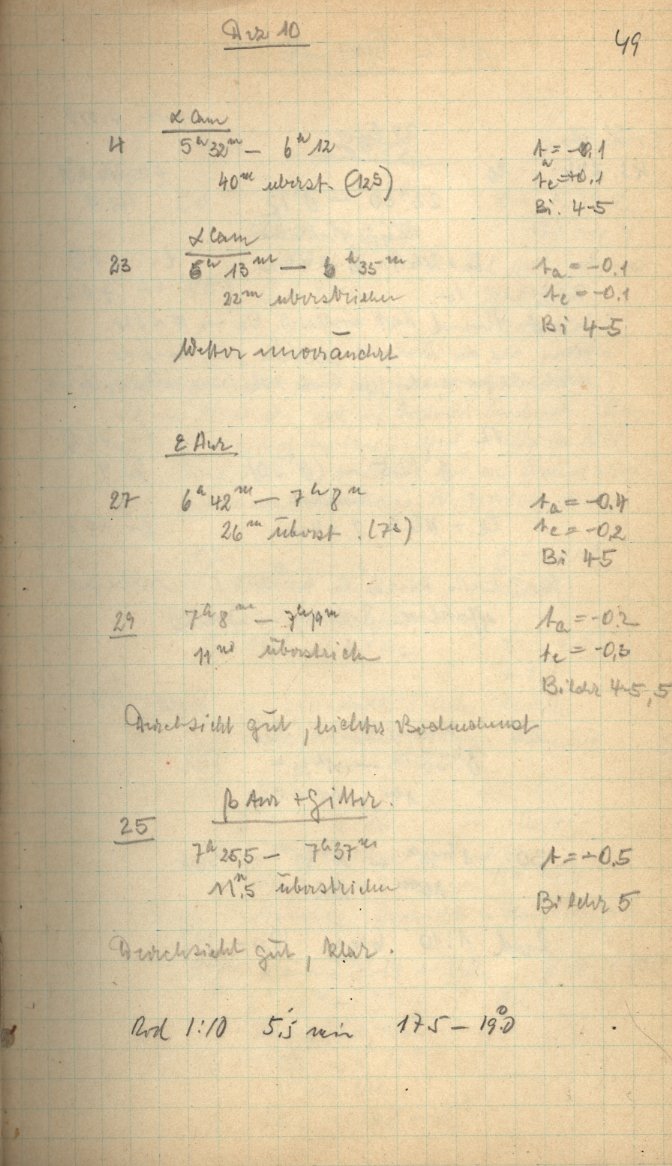 Dez 10
49
α Cam
4 5ʰ32ᵐ – 6ʰ12
t = -0,1
40ᵐ überst. (125)
tₑ = +0,1
Bi. 4-5
α Cam
23 6ʰ13ᵐ – 6ʰ35ᵐ
tₐ = -0,1
22ᵐ überstrichen
tₑ = -0,1
Bi 4-5
Wetter unverändert
ε Aur
27 6ʰ42ᵐ – 7ʰ8ᵐ
tₐ = -0,4
26ᵐ überst.
tₑ = -0,2
Bi 4-5
29 7ʰ8ᵐ – 7ʰ19ᵐ
tₐ = -0,2
11ᵐ überstrichen
tₑ = -0,3
Bilder 4-5, 5
Durchsicht gut, leichter Bodendunst
β Aur + Gitter.
25
7ʰ25,5 – 7ʰ37ᵐ
t = -0,5
11ᵐ,5 überstrichen
Bilder 5
Durchsicht gut, klar.
Rod 1:10 5,5 min 17.5 – 19°.0